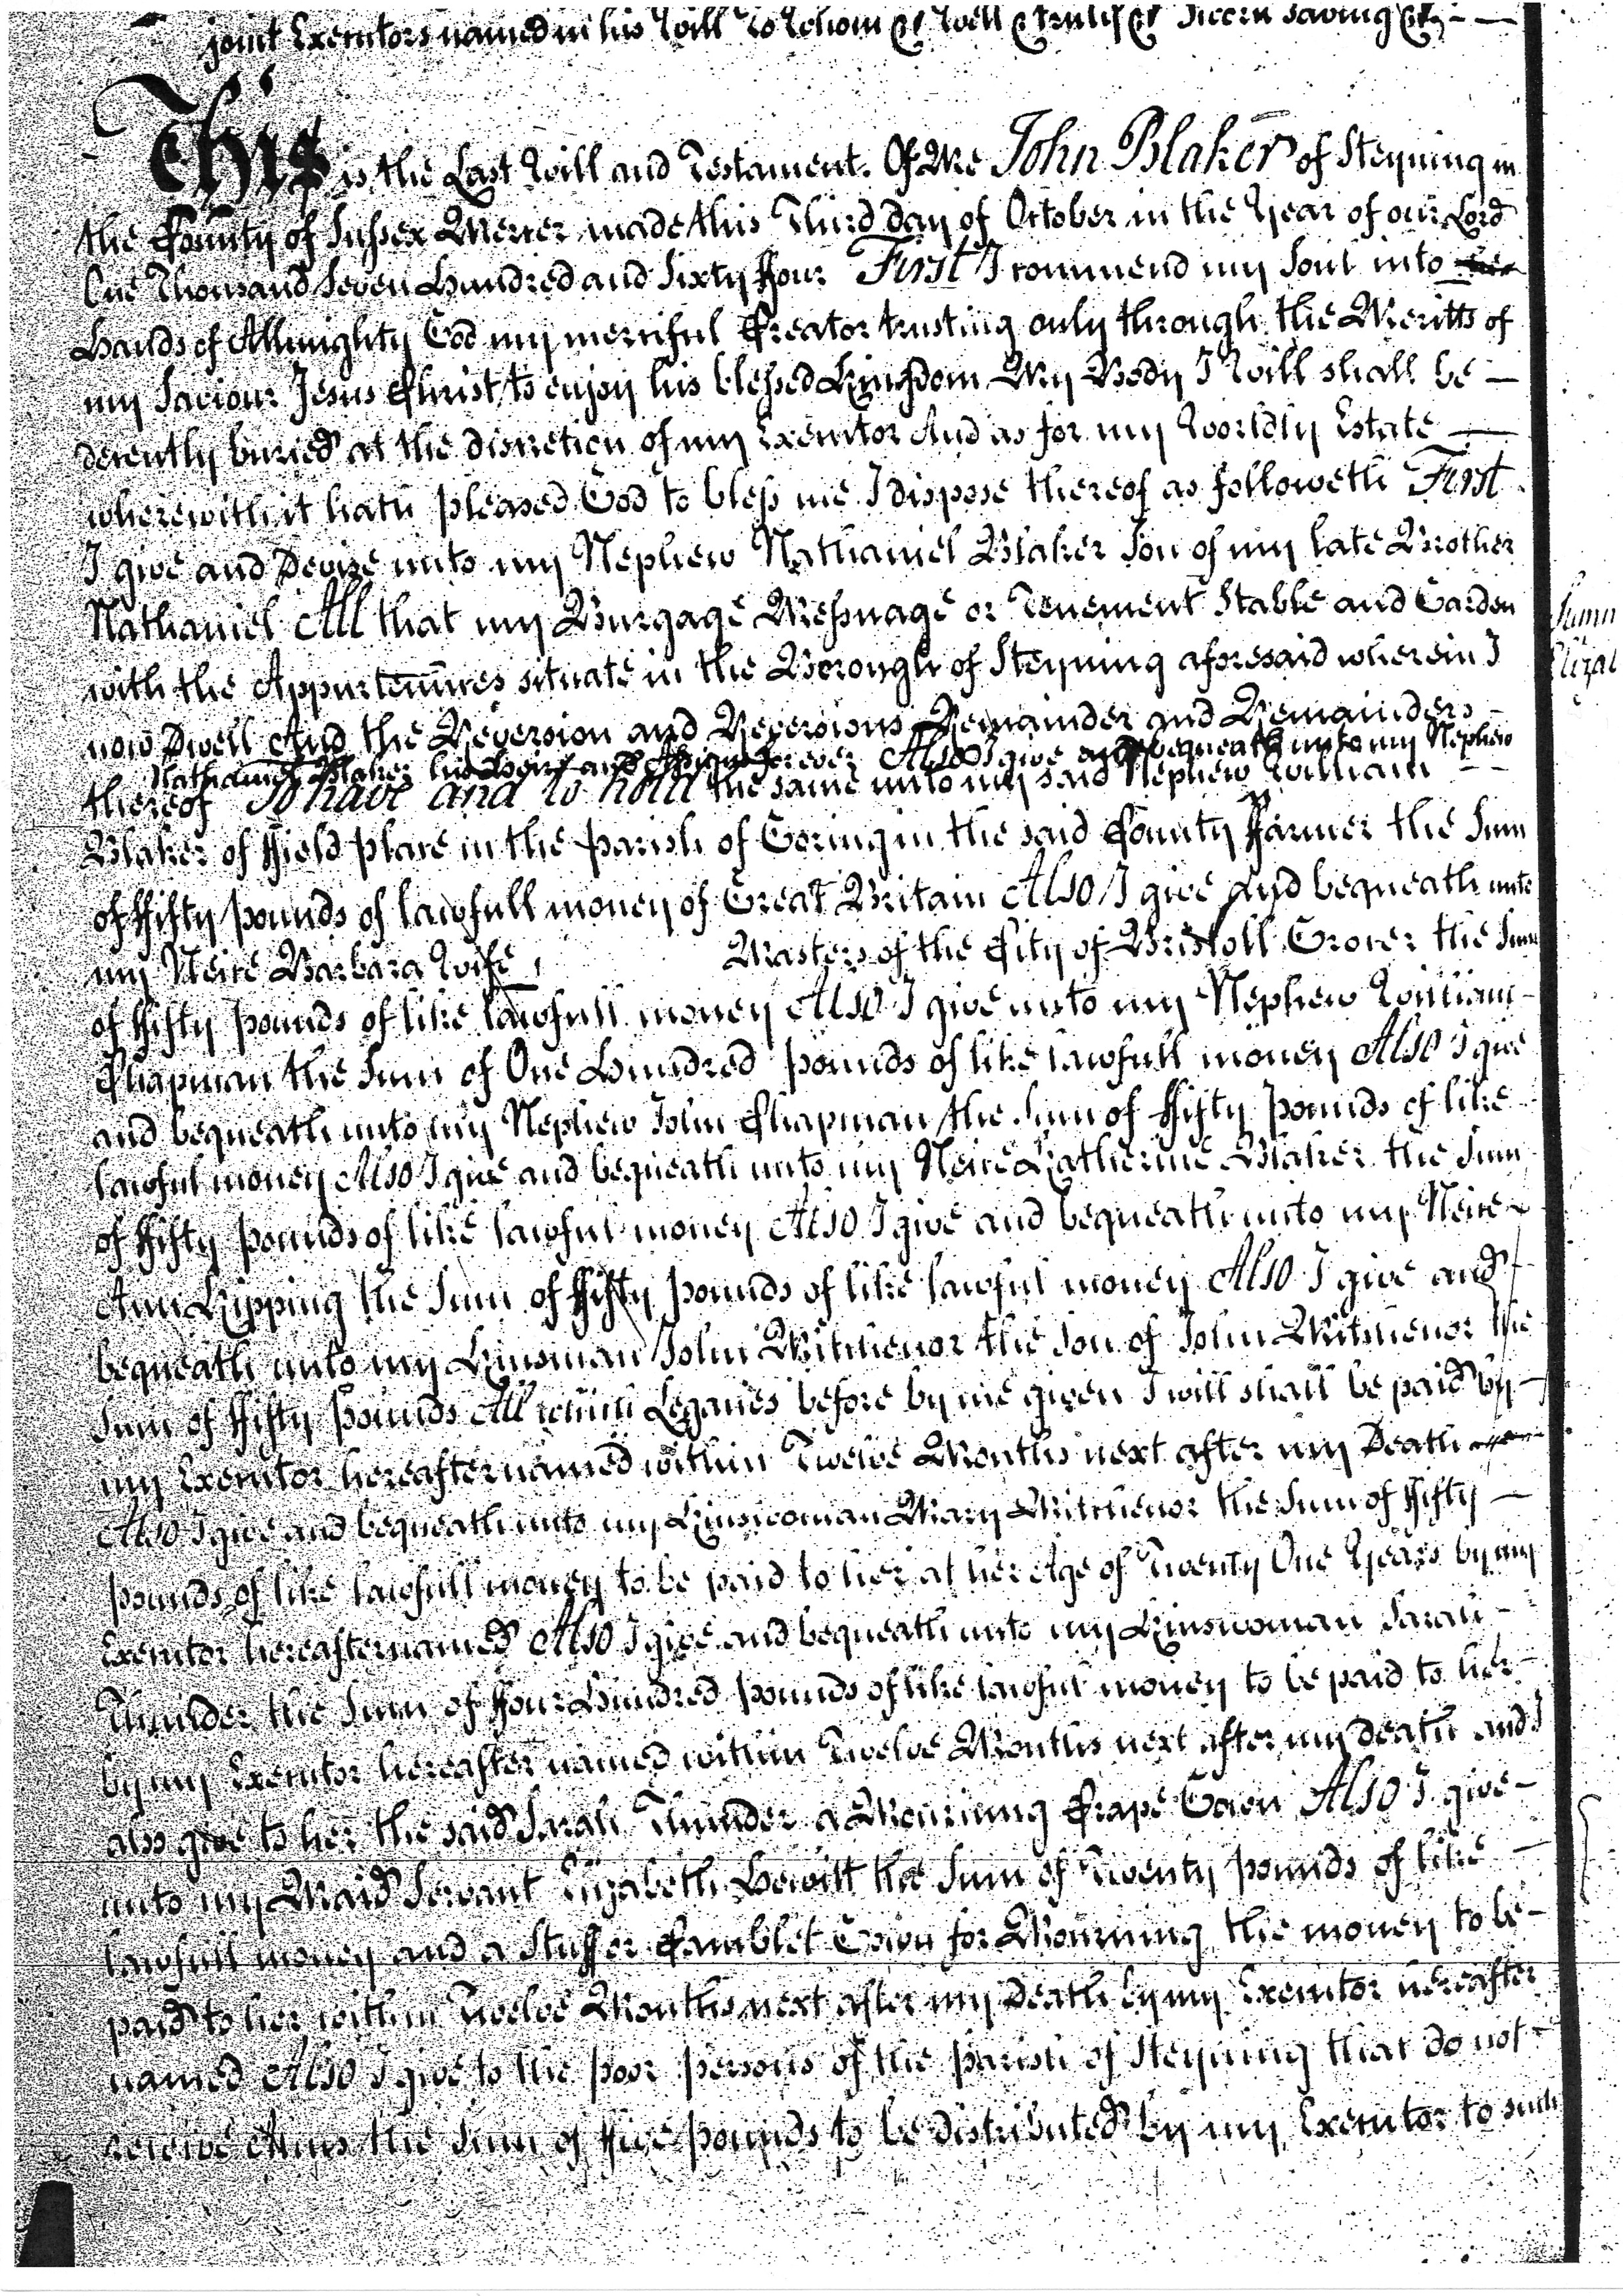 joint Executors named in his Will To Whom &c Well & truly &c Sworn saving &c
This is the Last Will and Testament Of Me John Blaker of Steyning in
the County of Sussex Mercer made this Third day of October in the Year of our Lord
One Thousand Seven Hundred and Sixty Four First I commend my Soul into the
Hands of Allmighty God my merciful Creator trusting only through the Meritts of
my Saviour Jesus Christ to enjoy his blessed Kingdom My Body I Will shall be
decently buried at the discretion of my Executor And as for my Worldly Estate
wherewith it hath pleased God to bless me I dispose thereof as followeth First
I give and Devize unto my Nephew Nathaniel Blaker Son of my late Brother
Nathaniel All that my Burgage Messuage or Tenement Stable and Garden
with the Appurtennces situate in the Borough of Steyning aforesaid wherein I
now Dwell And the Reversion and Reversions Remainder and Remainders
Nathaniel Blaker his Heirs and Assigns forever Also I give and bequeath unto my Nephew
thereof To have and to hold the same unto my said Nephew William
Blaker of Field place in the parish of Goring in the said County Farmer the Sum
of Fifty pounds of lawfull money of Great Britain Also I give and bequeath unto
my Neice Barbara Wife Masters of the City of Bristoll Grocer the Sum
of Fifty pounds of like lawfull money Also I give unto my Nephew William
Chapman the Sum of One Hundred pounds of like lawfull money Also I give
and bequeath unto my Nephew John Chapman the Sum of Fifty pounds of like
lawful money Also I give and bequeath unto my Neice Katherine Blaker the Sum
of Fifty pounds of like lawful money Also I give and bequeath unto my Neice
Ann Kipping the Sum of Fifty pounds of like lawful money Also I give and
bequeath unto my Kinsman John Mitchenor the Son of John Mitchenor the
Sum of Fifty pounds All which Legacies before by me given I will shall be paid by
my Executor hereafter named within Twelve Months next after my Death
Also I give and bequeath unto my Kinswoman Mary Mitchenor the Sum of Fifty
pounds of like lawfull money to be paid to her at her Age of Twenty One Years by my
Executor hereafter named Also I give and bequeath unto my Kinswoman Sarah
Thunder the Sum of Four Hundred pounds of like lawful money to be paid to her
by my Executor hereafter named within Twelve Months next after my death and I
also give to her the said Sarah Thunder a Mourning Crape Gown Also I give
unto my Maid Servant Elizabeth Hewitt the Sum of Twenty pounds of like
lawfull money and a Stuff or Camblet Gown for Mourning the money to be
paid to her within Twelve Months next after my Death by my Executor hereafter
named Also I give to the poor persons of the parish of Steyning that do not
receive Alms the Sum of Five pounds to be distributed by my Executor to such